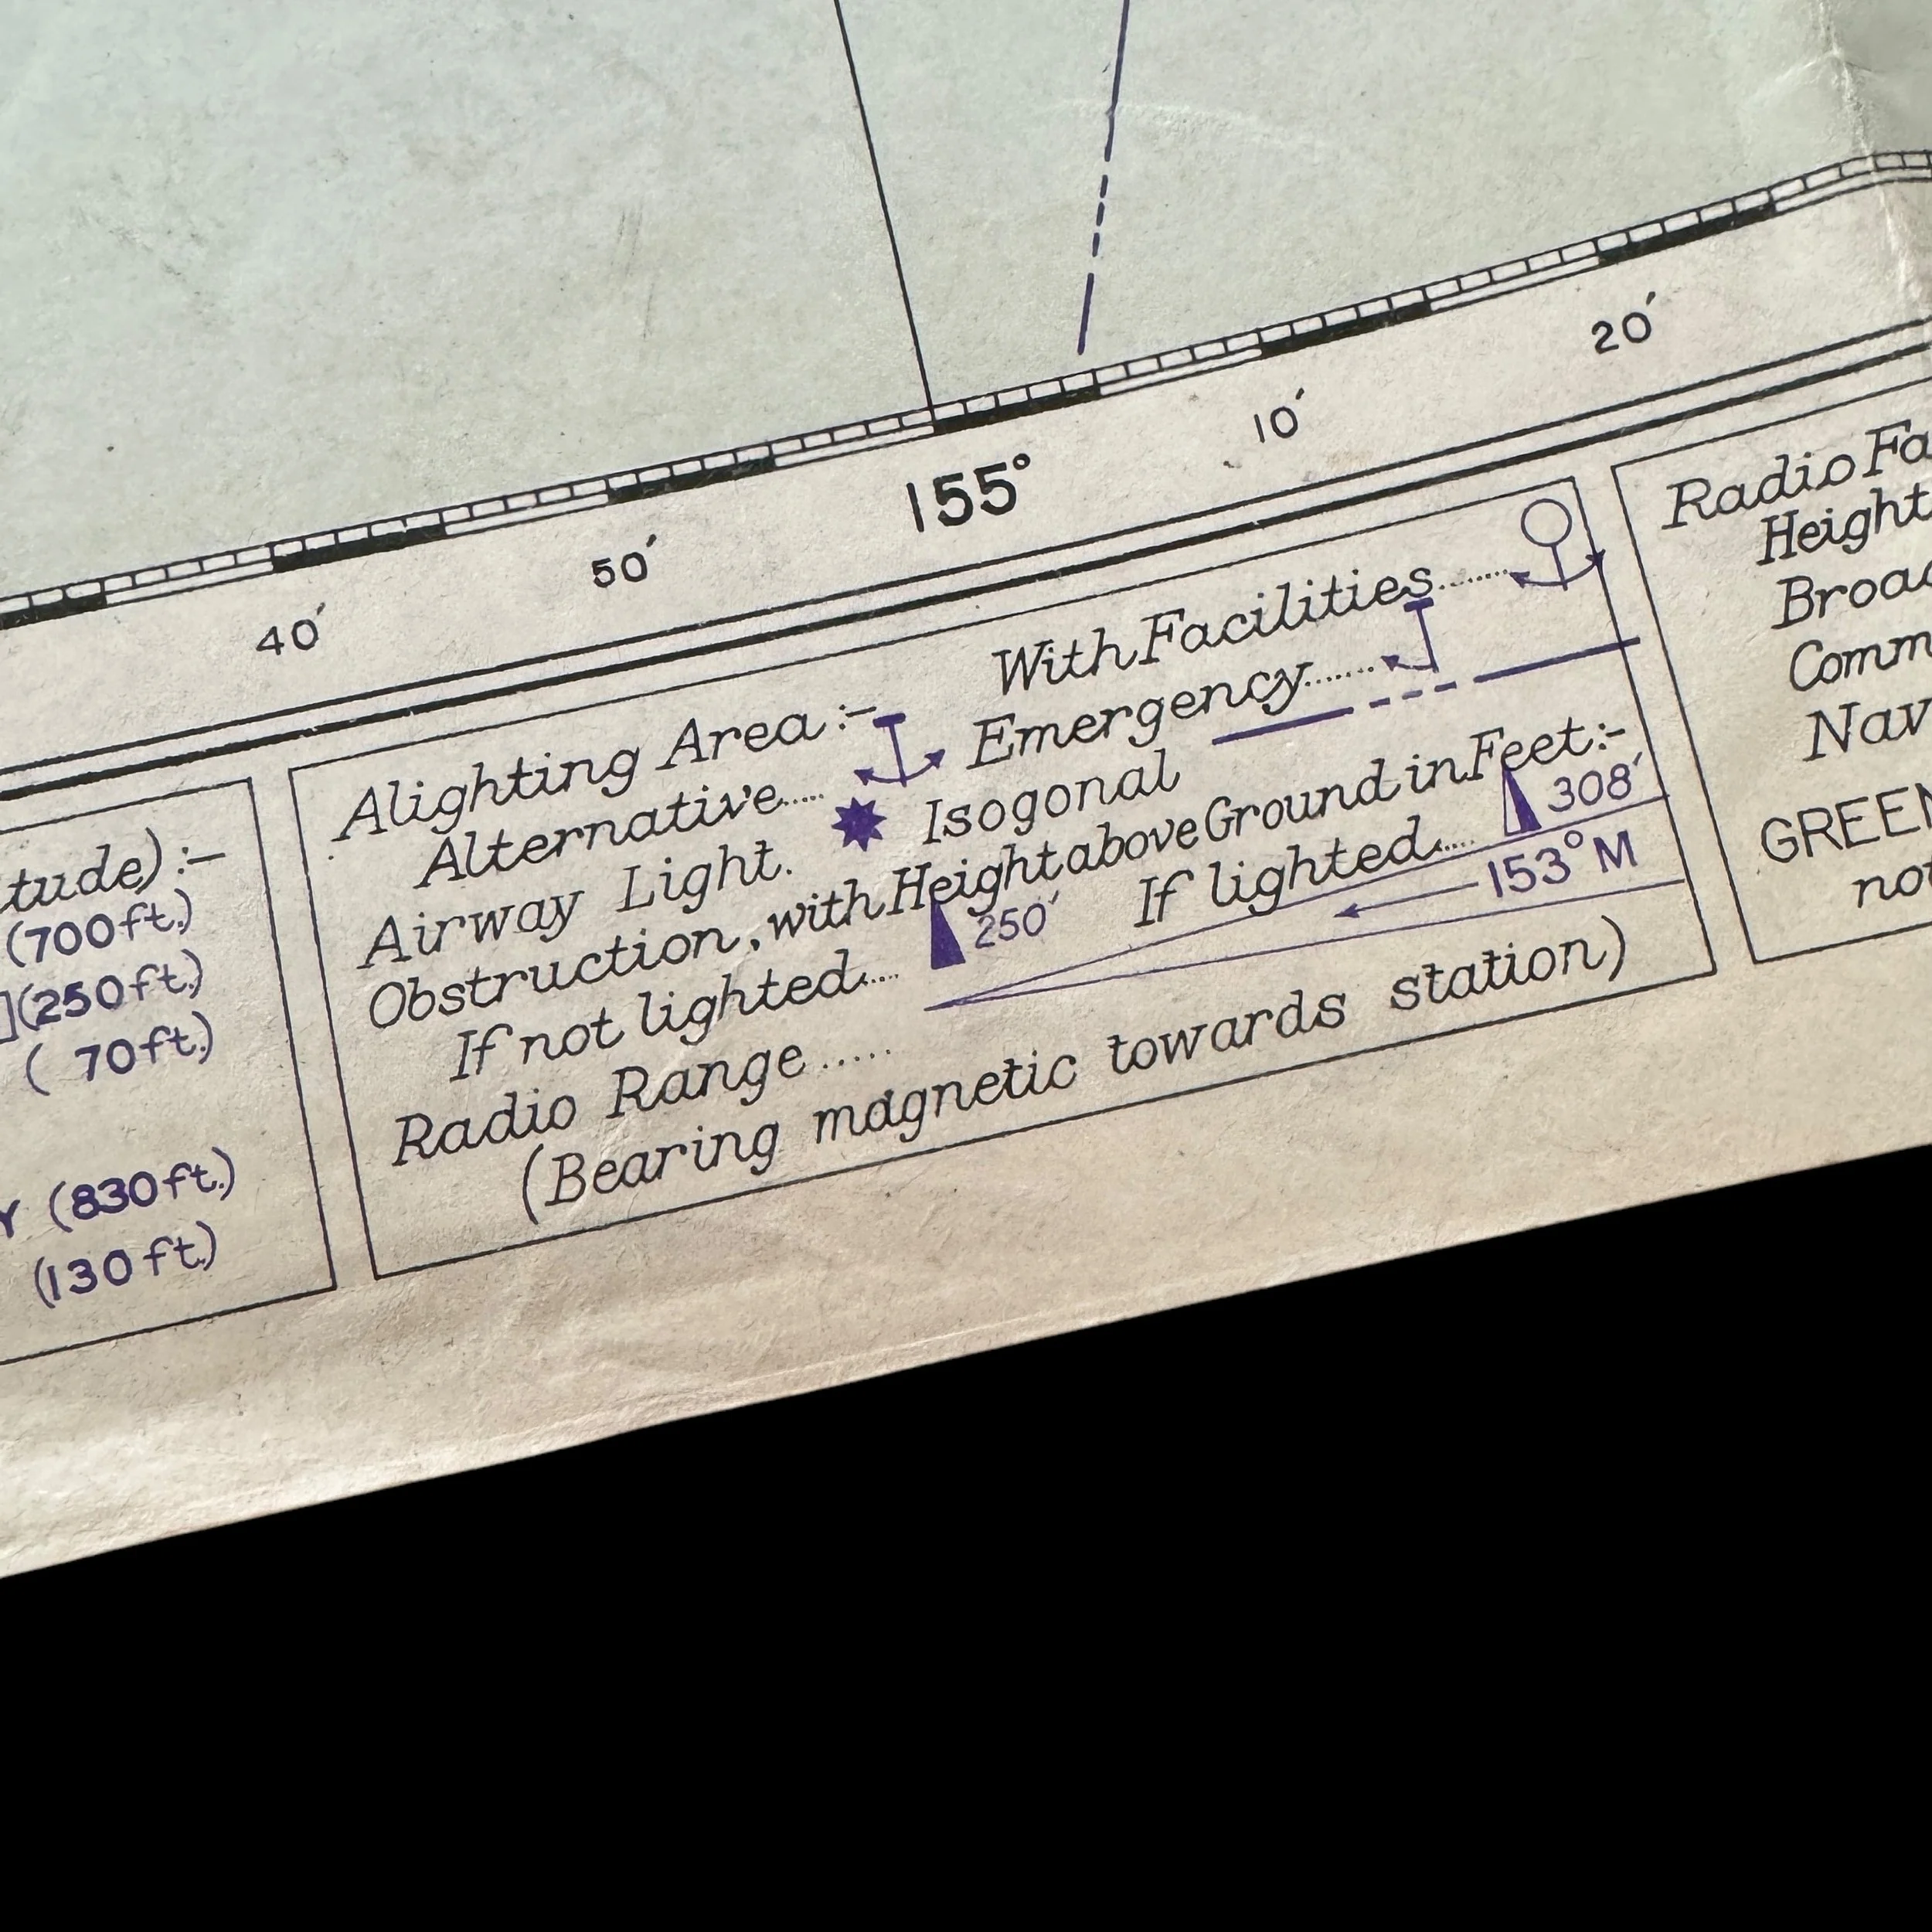 40′ 50′ 155° 10′ 20′
tude):-
(700ft.)
](250ft.)
( 70ft.)
Y (830ft.)
(130ft.)
Alighting Area:- With Facilities........
Alternative..... Emergency.......
Airway Light. Isogonal
Obstruction, with Height above Ground in Feet:-
If not lighted.... 250′ If lighted..... 308′
Radio Range...... 153°M
(Bearing magnetic towards station)
Radio Fa
Height
Broad
Comm
Nav
GREEN
not